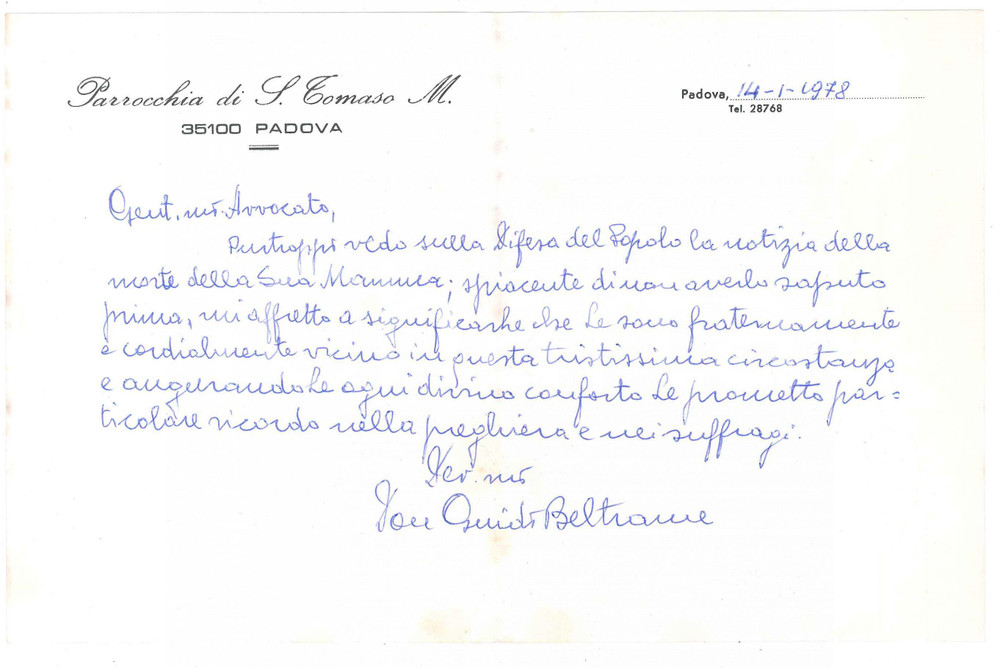 Parrocchia di S. Tomaso M.
35100 PADOVA
Padova, 14-1-1978
Tel. 28768
Gent.mo Avvocato,
Purtroppo vedo sulla Difesa del Popolo la notizia della
morte della Sua Mamma; spiacente di non averlo saputo
prima, mi affretto a significarLe che Le sono fraternamente
e cordialmente vicino in questa tristissima circostanza
e augurandoLe ogni divino conforto Le prometto par=
ticolare ricordo nella preghiera e nei suffragi.
Dev.mo
Don Guido Beltrame